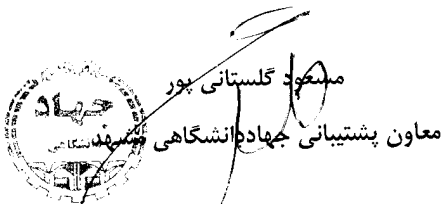 مسعود گلستانی پور
معاون پشتیبانی جهاددانشگاهی مشهد
جهاد
دانشگاهی